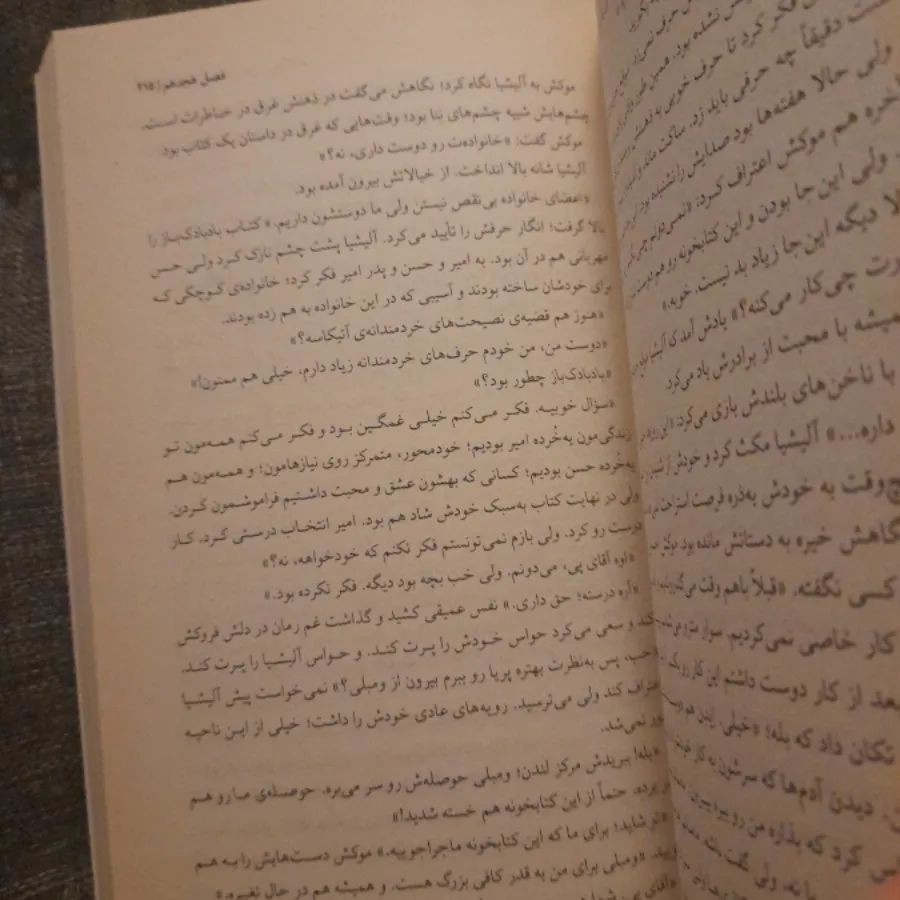 فصل هجدهم | ۲۱۵
موکش به آلیشیا نگاه کرد؛ نگاهش می‌گفت در ذهنش غرق در خاطرات است.
چشم‌هایش شبیه چشم‌های نینا بود؛ وقت‌هایی که غرق در داستان یک کتاب بود.
موکش گفت: «خانواده‌ت رو دوست داری، نه؟»
آلیشیا شانه بالا انداخت. از خیالاتش بیرون آمده بود.
«اعضای خانواده بی‌نقص نیستن ولی ما دوستشون داریم.» کتاب بادبادک‌باز را
بالا گرفت؛ انگار حرفش را تأیید می‌کرد. آلیشیا پشت چشم نازک کرد ولی حس
مهربانی هم در آن بود. به امیر و حسن و پدر امیر فکر کرد؛ خانواده‌ی کوچکی که
برای خودشان ساخته بودند و آسیبی که در این خانواده به هم زده بودند.
«هنوز هم قضیه‌ی نصیحت‌های خردمندانه‌ی آتیکاسه؟»
«دوست من، من خودم حرف‌های خردمندانه زیاد دارم، خیلی هم ممنون!»
«بادبادک‌باز چطور بود؟»
«سؤال خوبیه. فکر می‌کنم خیلی غمگین بود و فکر می‌کنم همه‌مون تو
زندگی‌مون یه‌خُرده امیر بودیم؛ خودمحور، متمرکز روی نیازهامون؛ و همه‌مون هم
یه‌خُرده حسن بودیم؛ کسانی که بهشون عشق و محبت داشتیم فراموشمون کردن.
ولی در نهایت کتاب به‌سبک خودش شاد هم بود. امیر انتخاب درستی کرد. کار
درست رو کرد. ولی بازم نمی‌تونستم فکر نکنم که خودخواهه، نه؟»
«اوه آقای پی، می‌دونم. ولی خب بچه بود دیگه. فکر نکرده بود.»
«آره درسته؛ حق داری.» نفس عمیقی کشید و گذاشت غم رمان در دلش فروکش
کند و سعی می‌کرد حواس خودش را پرت کند. و حواس آلیشیا را پرت کند.
«خب، پس به‌نظرت بهتره پریا رو ببرم بیرون از ومبلی؟» نمی‌خواست پیش آلیشیا
اعتراف کند ولی می‌ترسید. رویه‌های عادی خودش را داشت؛ خیلی از این ناحیه
دور نمی‌شد.
«بله! ببریدش مرکز لندن؛ ومبلی حوصله‌ش رو سر می‌بره. حوصله‌ی ما رو هم
سر برده. حتماً از این کتابخونه هم خسته شدید!»
شاید؛ برای ما که این کتابخونه ماجراجوییه.» موکش دست‌هایش را به هم
«ومبلی برای من به قدر کافی بزرگ هست. و همیشه هم در حال تغییره.»
حرف نمی‌زد
نشده بود. همین
فکر کرد تا حرف خوبی به ذهنش
دقیقاً چه حرفی باید زد. ساکت ماند و
ولی حالا هفته‌ها بود صدایش را نشنیده بود.
هم موکش اعتراف کرد: «نمی‌دونم
ولی این جا بودن و این کتابخونه رو هم دوست
دیگه این‌جا زیاد بد نیست. خوبه.»
چی‌کار می‌کنه؟» یادش آمد که آلیشیا
با محبت از برادرش یاد می‌کرد.
با ناخن‌های بلندش بازی می‌کرد:
داره...» آلیشیا مکث کرد و خودش
وقت به خودش یه‌ذره فرصت استراحت
خیره به دستانش مانده بود.
کسی نگفته. «قبلاً باهم وقت
کار خاصی نمی‌کردیم. سوار
بعد از کار دوست داشتم این کار رو
تکان داد که بله؛ «خیلی.
دیدن آدم‌ها که سرشون به کار
کرد که بذاره من رو ببره بیرون
ولی گفت باشه.